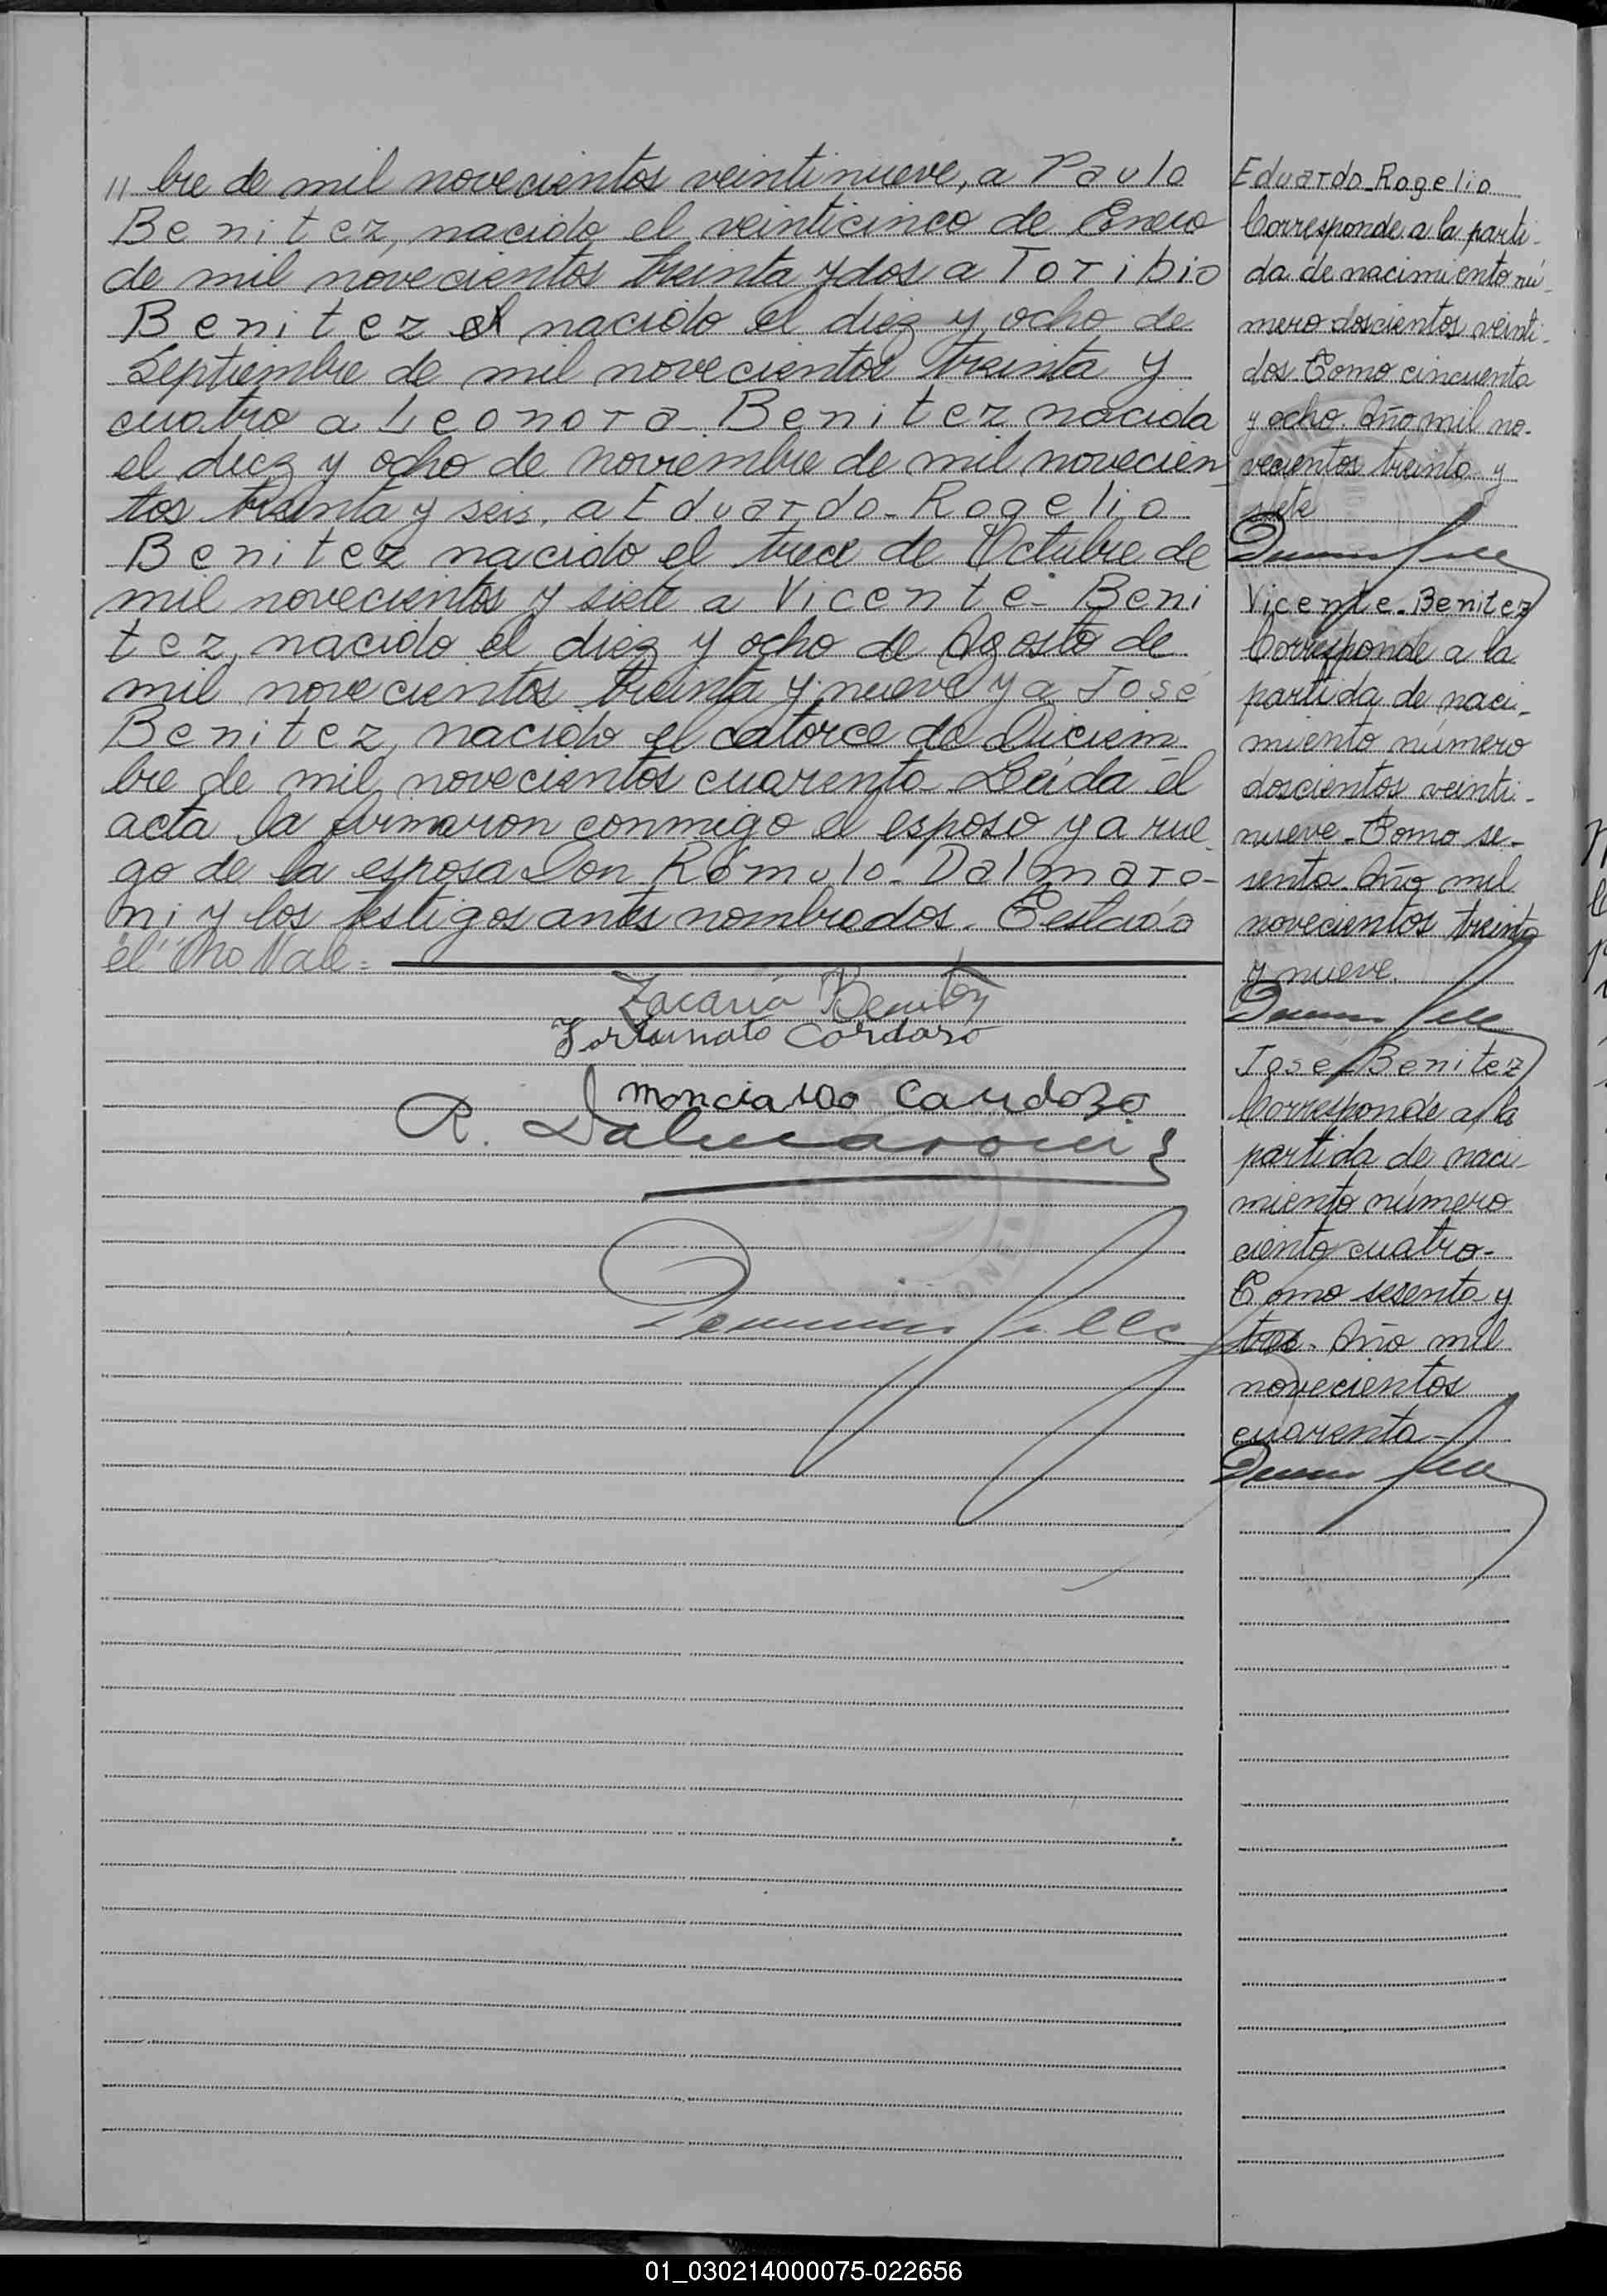 " bre de mil novecientos veintinueve, a Paulo
Benitez, nacido el veinticinco de Enero
de mil novecientos treinta y dos a Toribio
Benitez el nacido el diez y ocho de
Septiembre de mil novecientos treinta y
cuatro a Leonora Benitez nacida
el diez y ocho de noviembre de mil novecien
tos treinta y seis, a Eduardo-Rogelio
Benitez nacido el trece de Octubre de
mil novecientos y siete a Vicente-Beni
tez, nacido el diez y ocho de Agosto de
mil novecientos treinta y nueve y a José
Benitez, nacido el catorce de Diciem
bre de mil novecientos cuarenta- Leida el
acta, la firmaron conmigo el esposo y a rue
go de la esposa Don Rómulo-Dalmaro-
ni y los testigos antes nombrados.
el No Vale=
Zacaría Benitez
Fortunato Cardozo
Cardozo
R. Dalmaroni
Eduardo-Rogelio
Corresponde a la parti-
da de nacimiento nú-
mero doscientos veinti-
dos-Tomo cincuenta
y ocho. Año mil no-
vecientos treinta y
siete
Vicente-Benitez
Corresponde a la
partida de naci-
miento número
doscientos veinti-
nueve-Tomo se-
senta Año mil
novecientos treinta
y nueve.
José Benitez
Corresponde a la
partida de naci-
miento número
ciento cuatro-
Tomo sesenta y
tres. Año mil
novecientos
cuarenta-
01_030214000075-022656